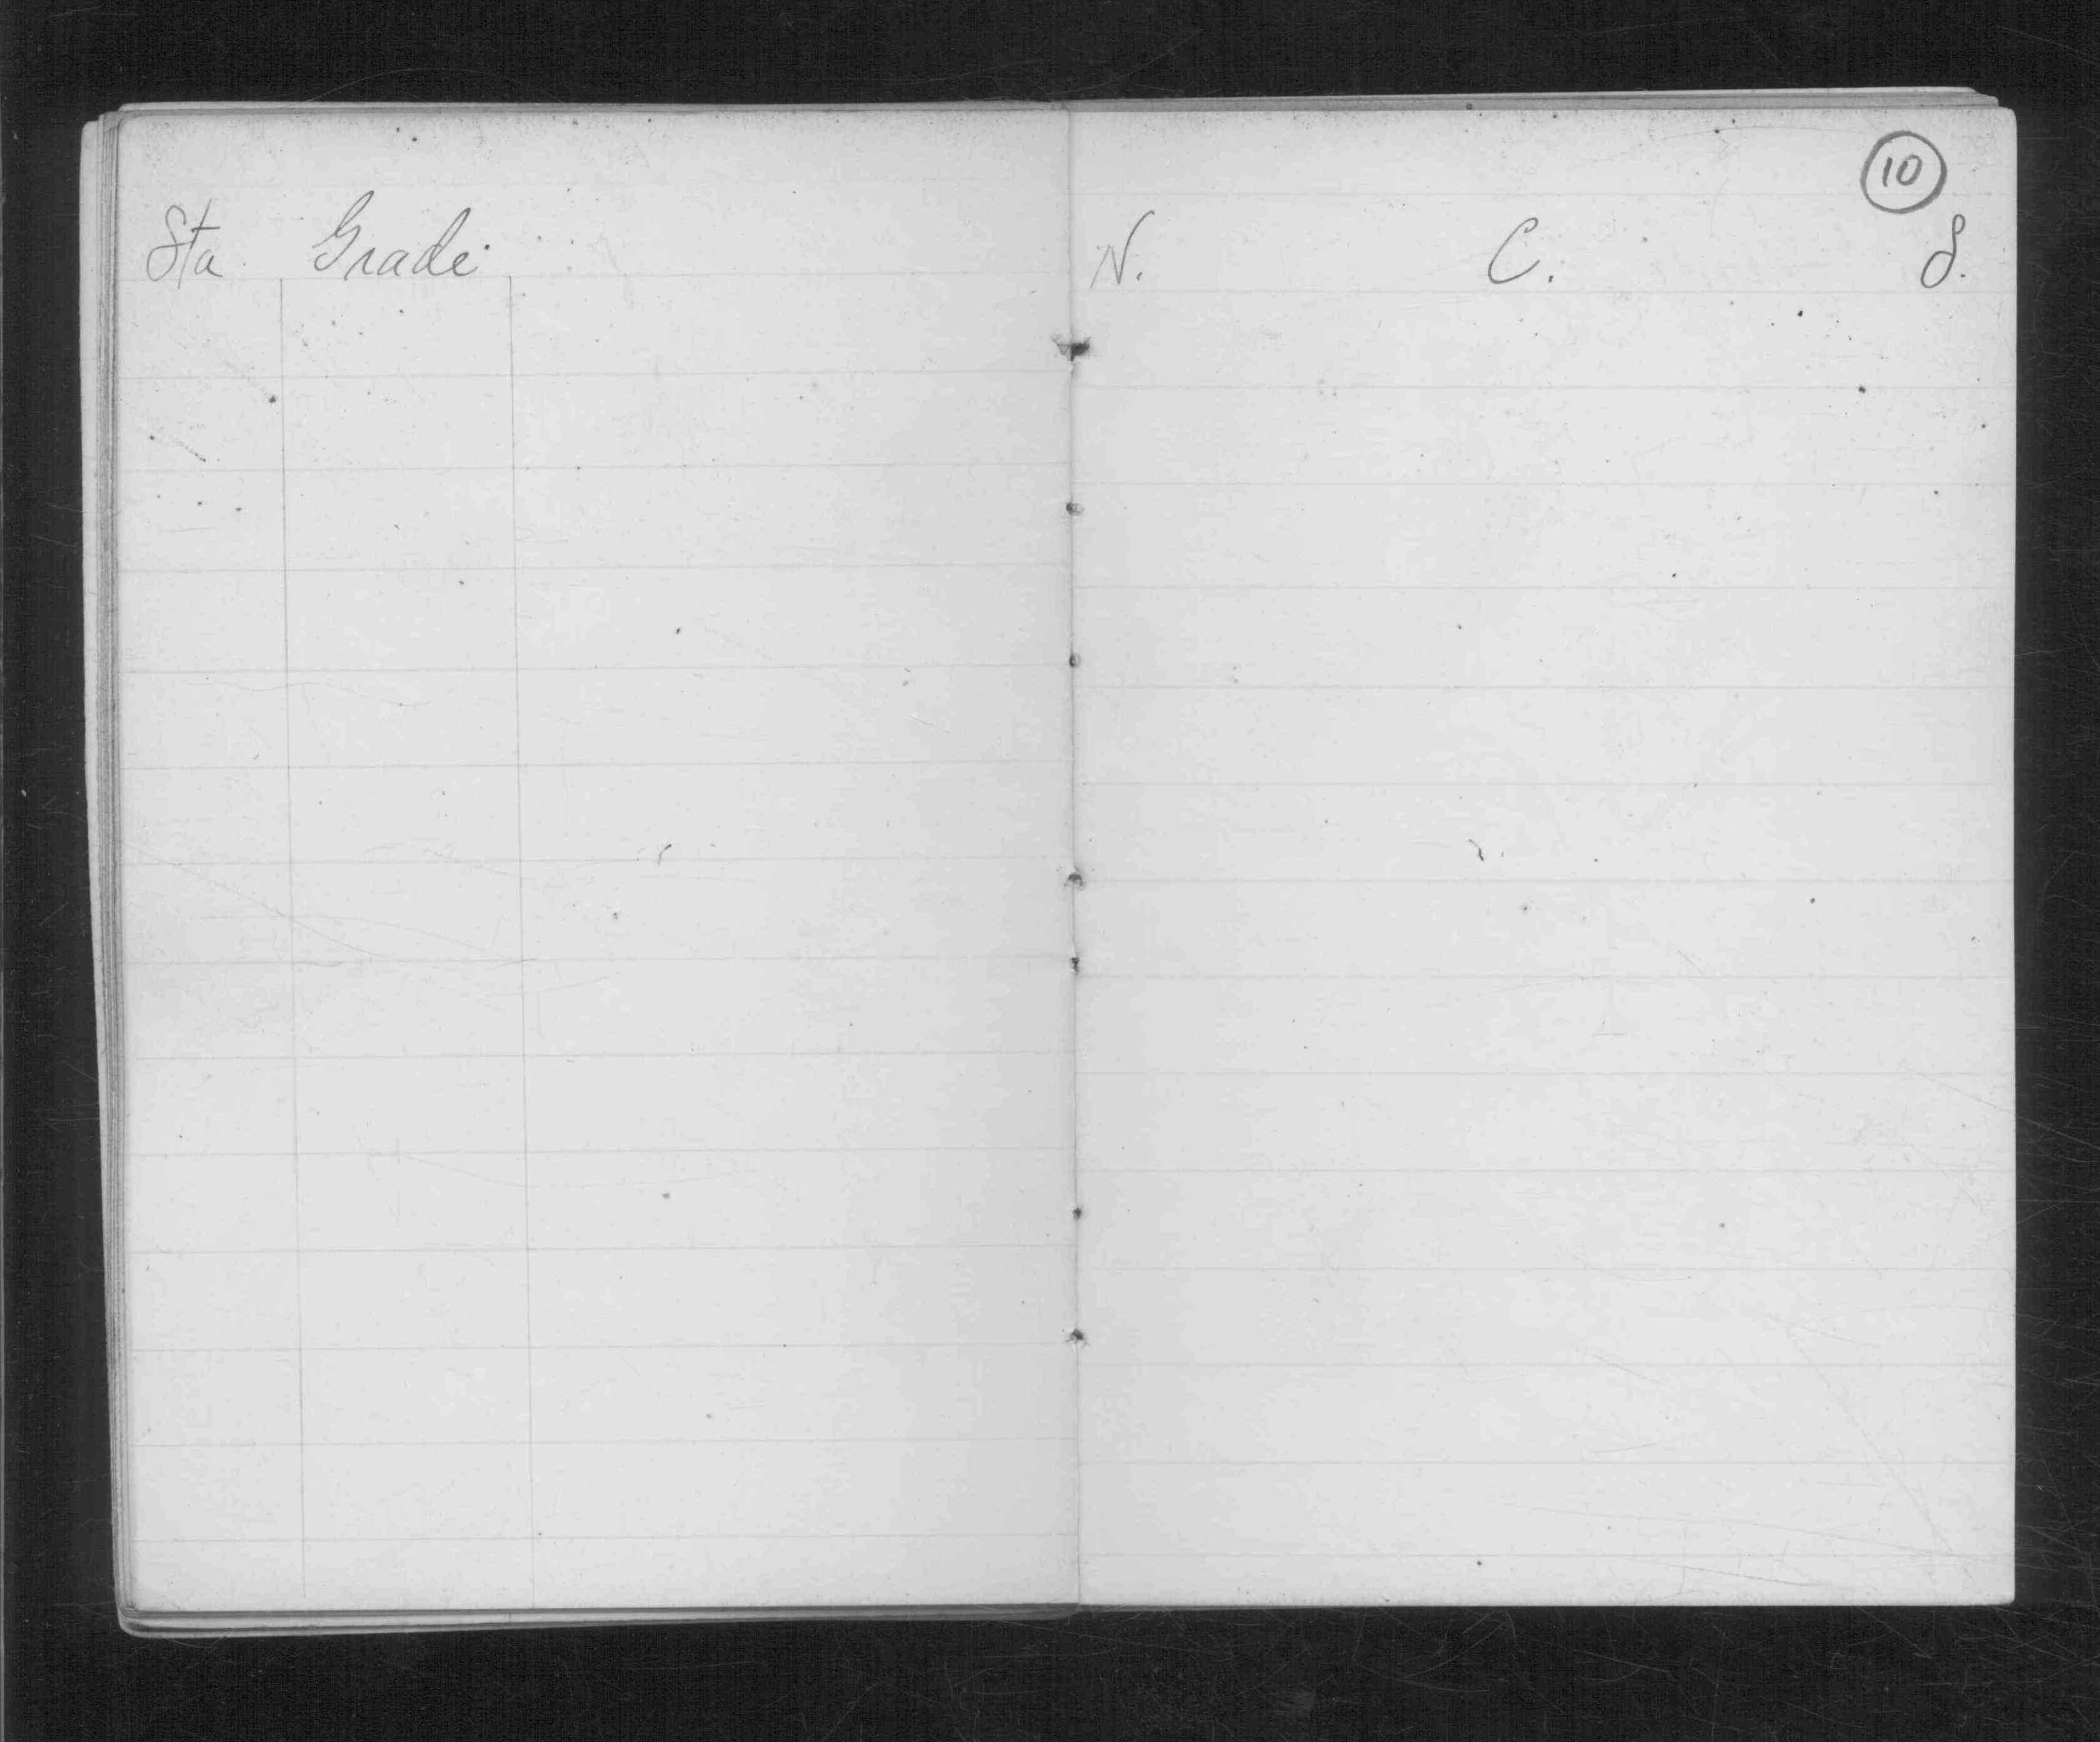 10
Sta Grade N. C. S.